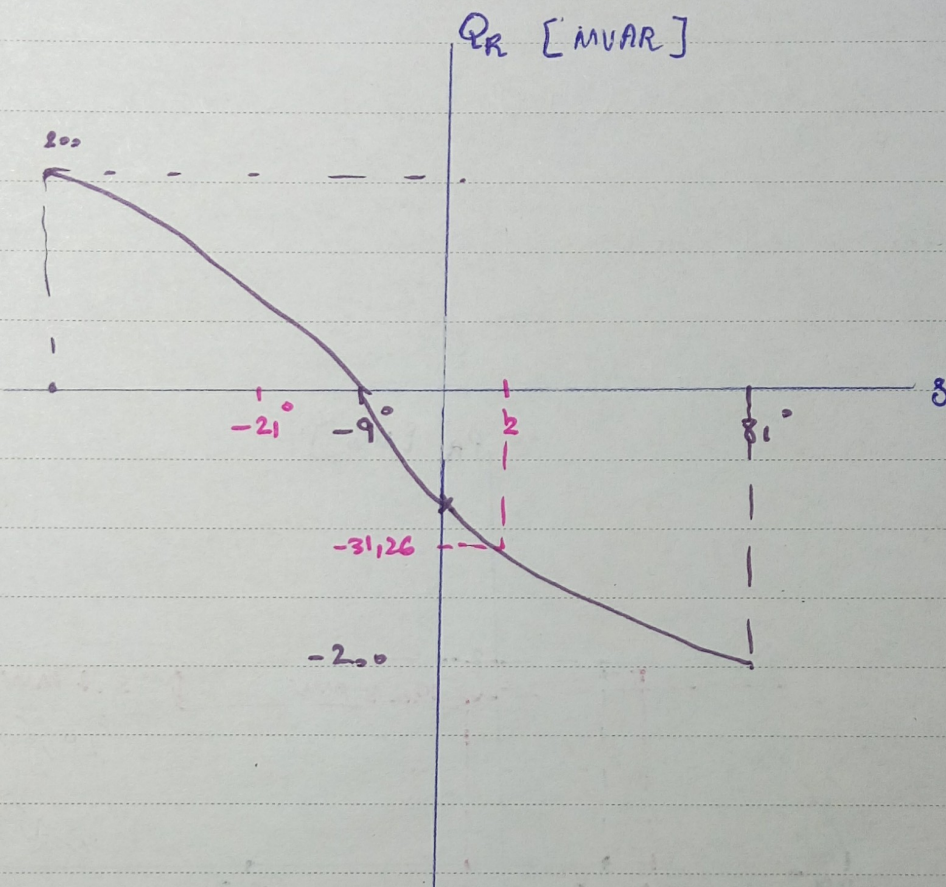 Q_R [MVAR]
200
δ
-21°
-9°
2
81°
-31,26
-200